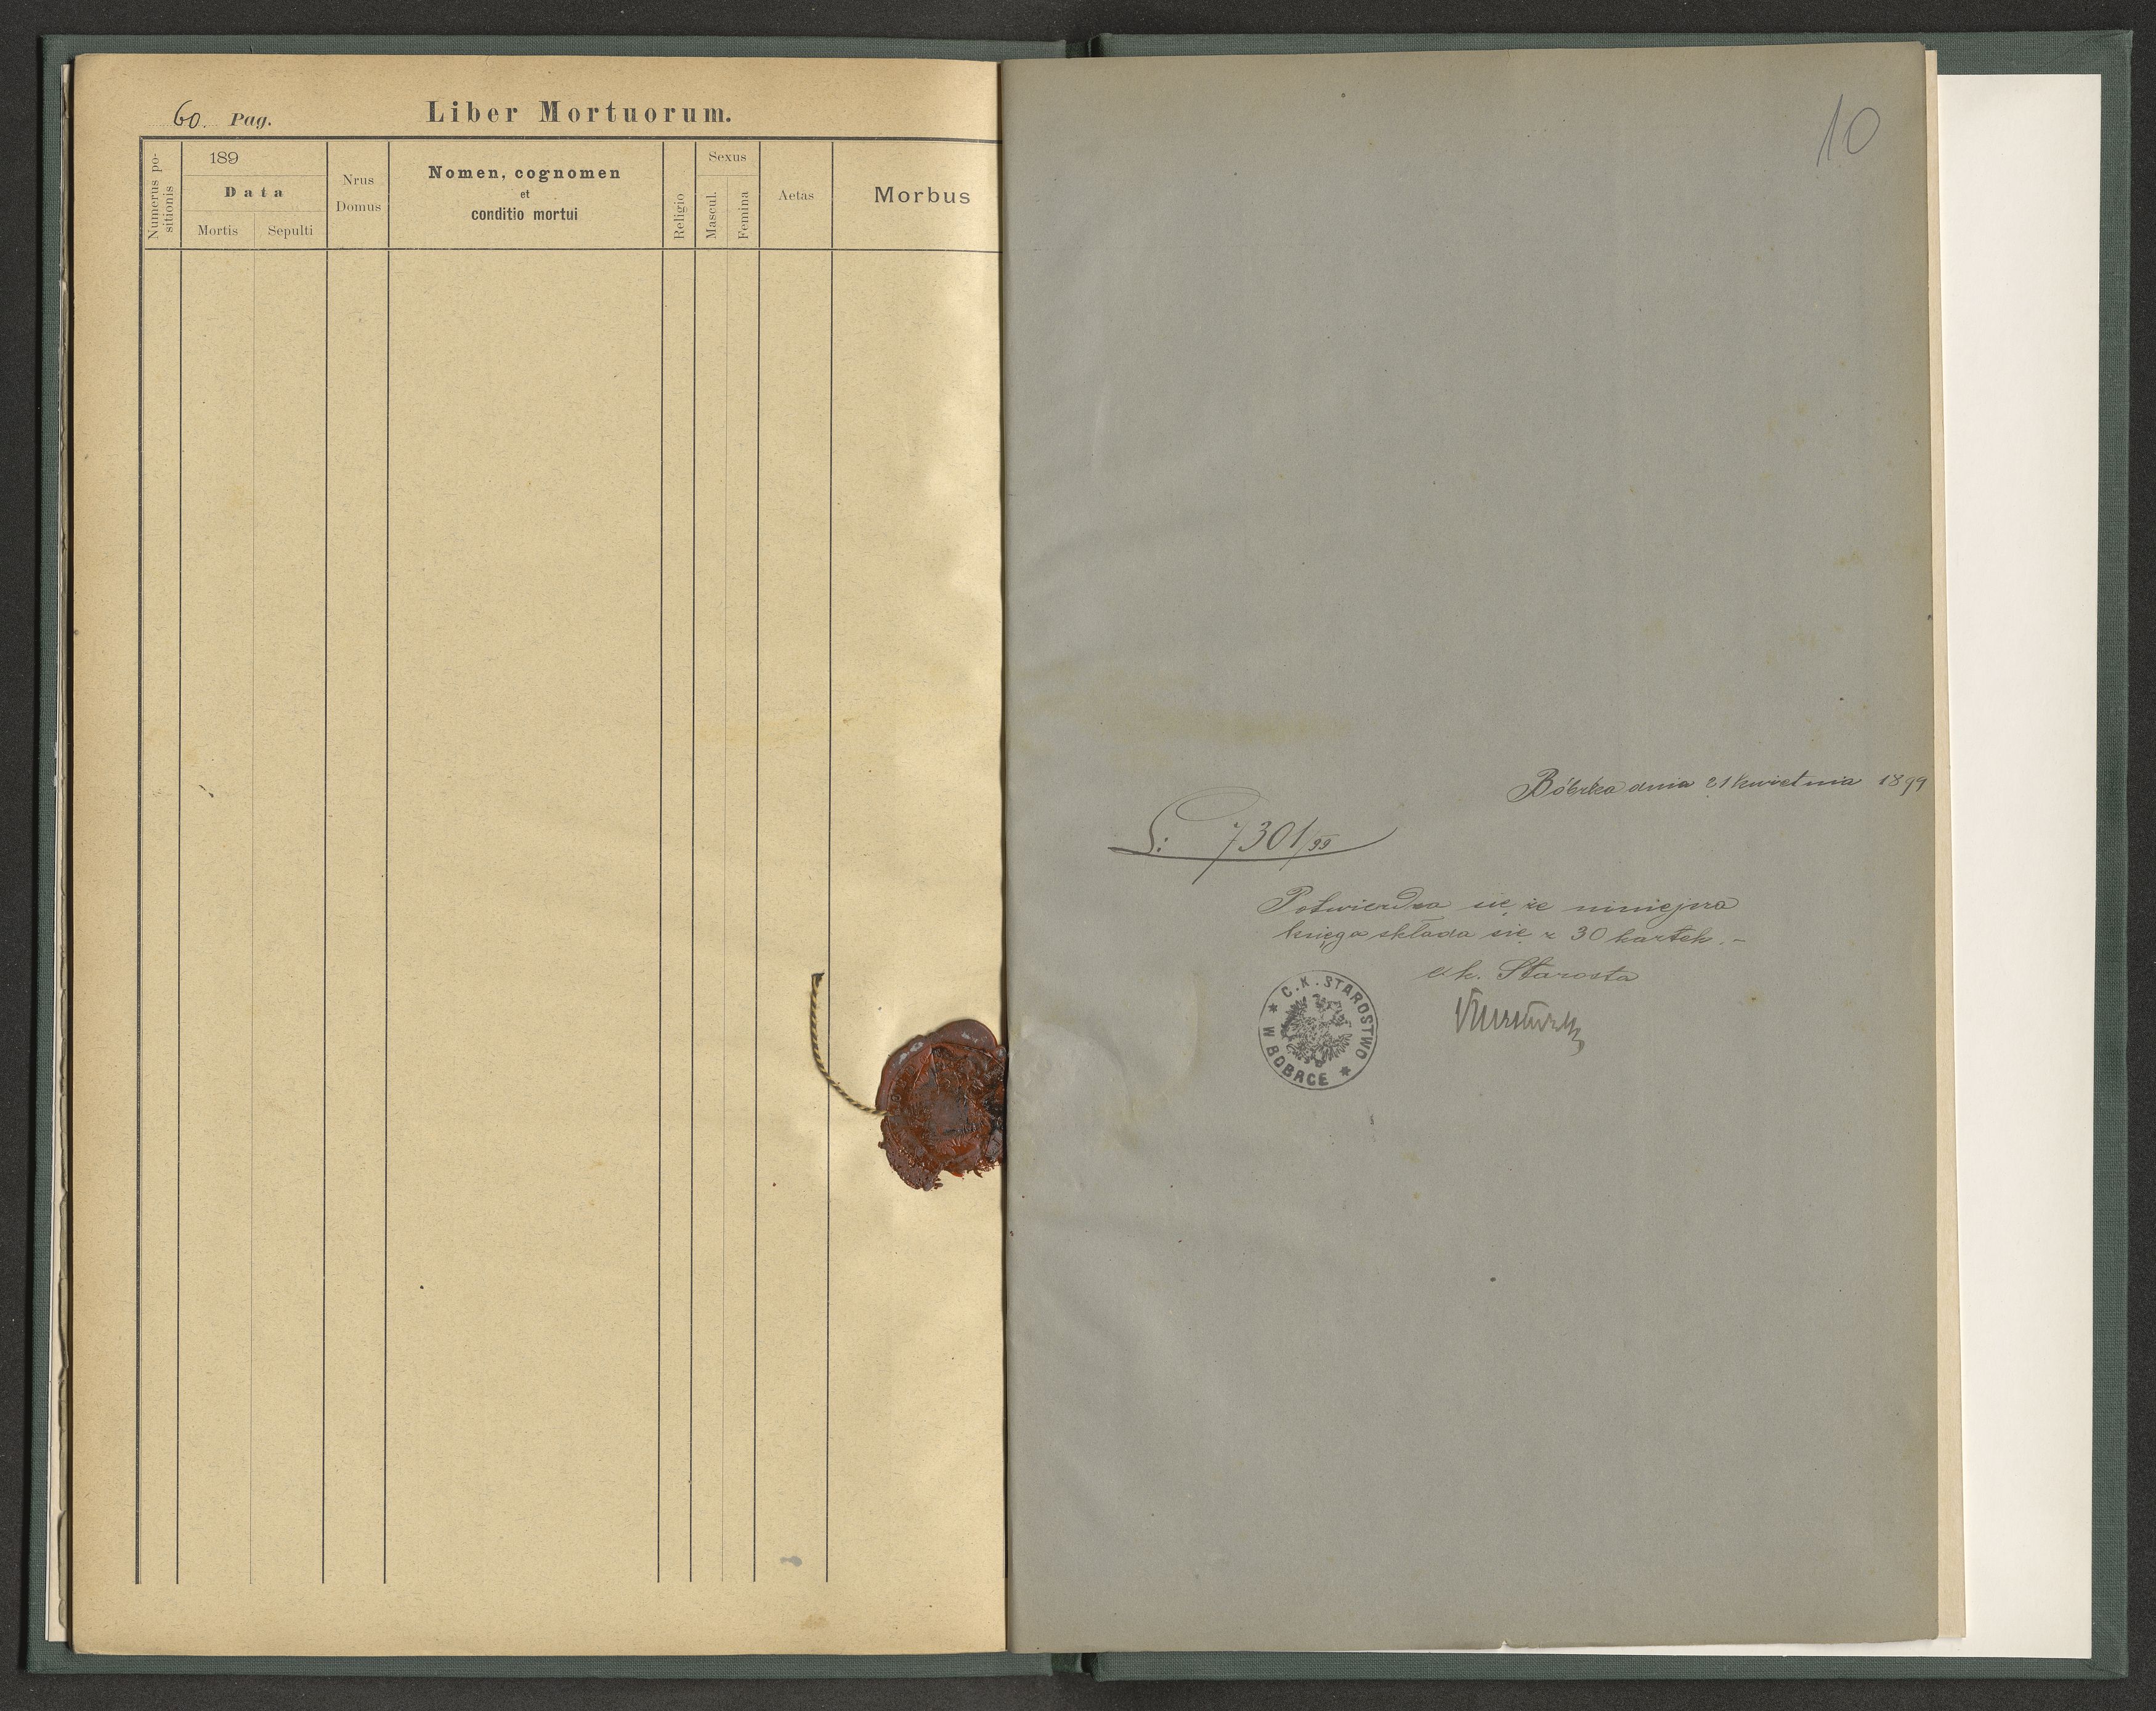 60. Pag.
Liber Mortuorum.
Numerus po-
sitionis
189
Data
Mortis
Sepulti
Nrus
Domus
Nomen, cognomen
et
conditio mortui
Religio
Sexus
Mascul.
Femina
Aetas
Morbus
10
Bóbrka dnia 21 kwietnia 1899
L: 7301/99
Potwierdza się że niniejsza
księga składa się z 30 kartek. -
ck. Starosta
C. K. STAROSTWO
W BOBRCE